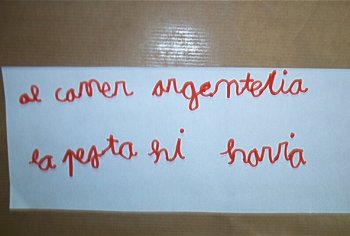 al carrer argentelia
la pesta hi havia